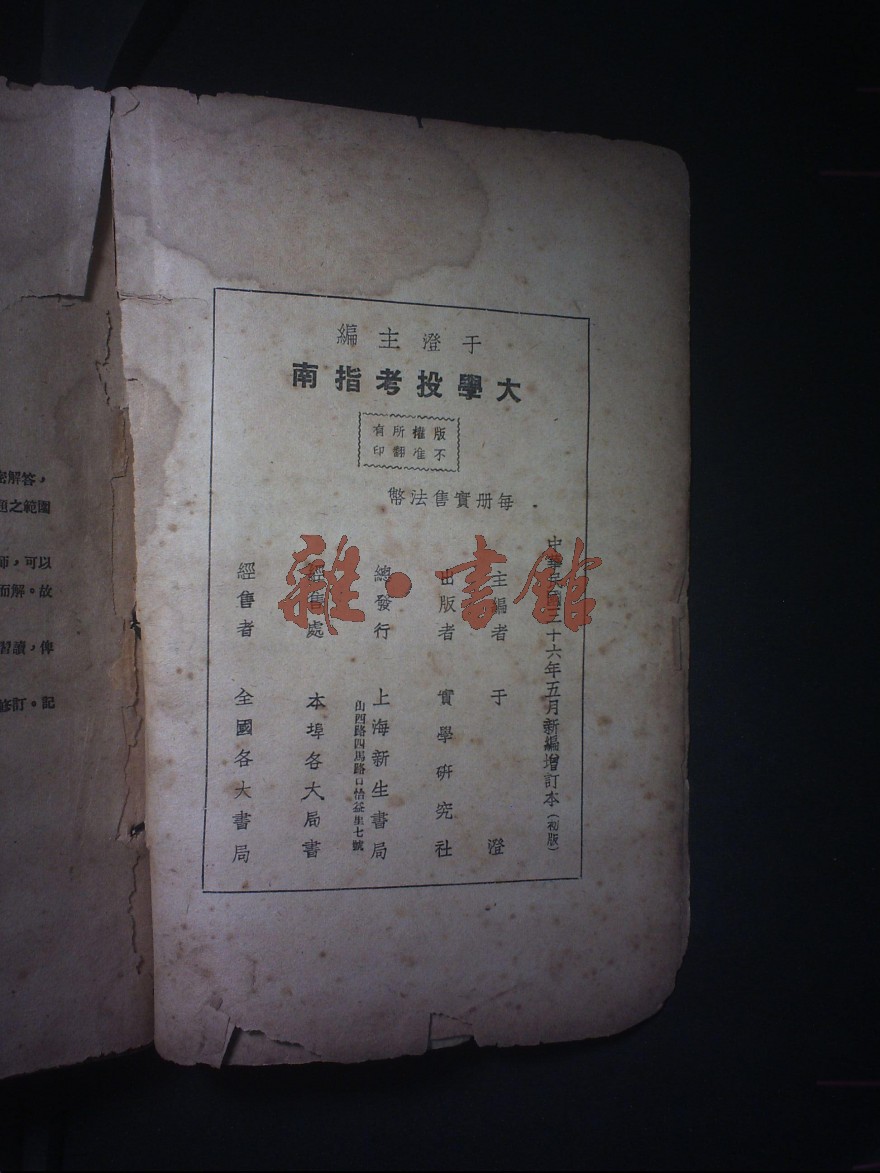 于澄主編
大學投考指南
版權所有
不准翻印
每册實售法幣
中華民國三十六年五月新編增訂本(初版)
主編者 于澄
出版者 實學研究社
總發行 上海新生書局
山西路四馬路口怡益里七號
經售處 本埠各大局書
經售者 全國各大書局
雜·書館
密解答,
題之範圍
師,可以
而解。故
習讀,俾
修訂。記